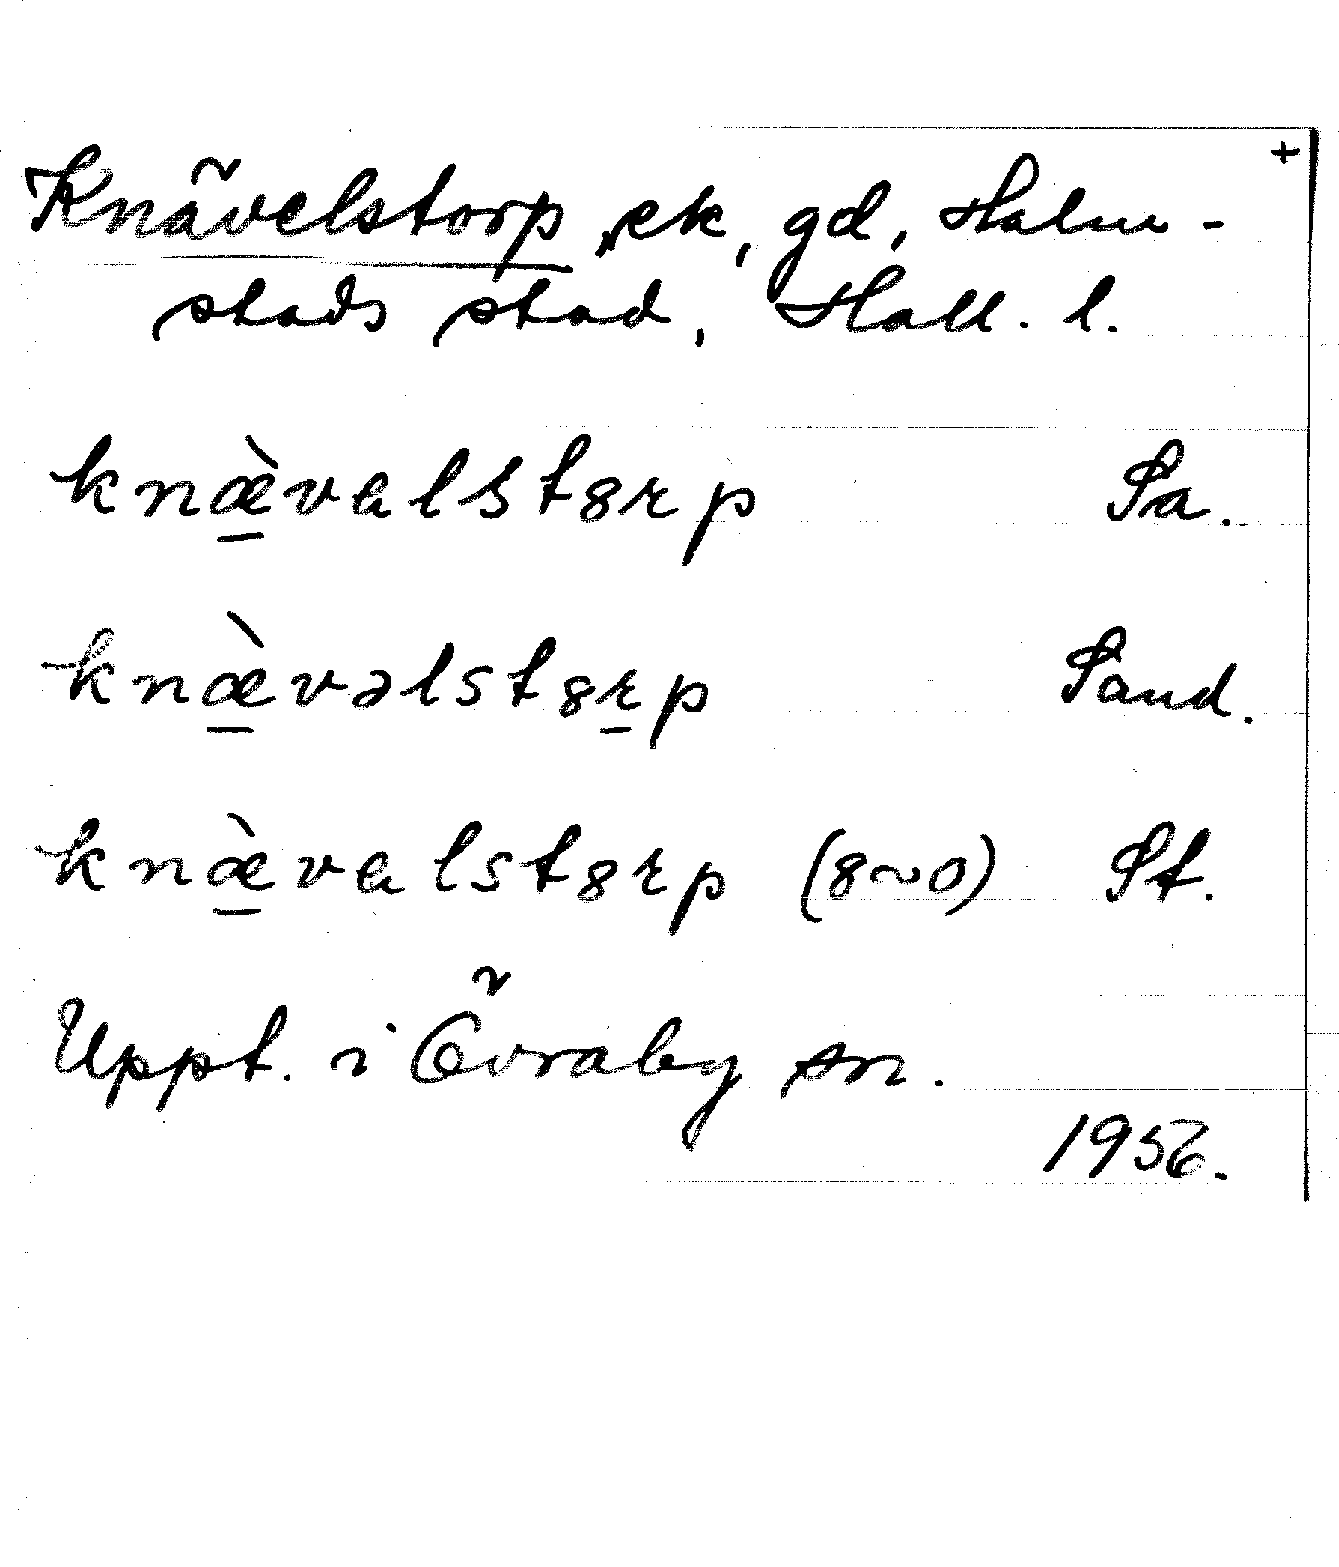 +
Knävelstorp, ek, gd, Halm-
stads stad, Hall. l.
knæ̠̀valstȣrp Sa.
knæ̠̀vəlstȣr̠p Sand.
knæ̠̀valstȣrp (ȣ~o) St.
Uppt. i Övraby sn.
1956.